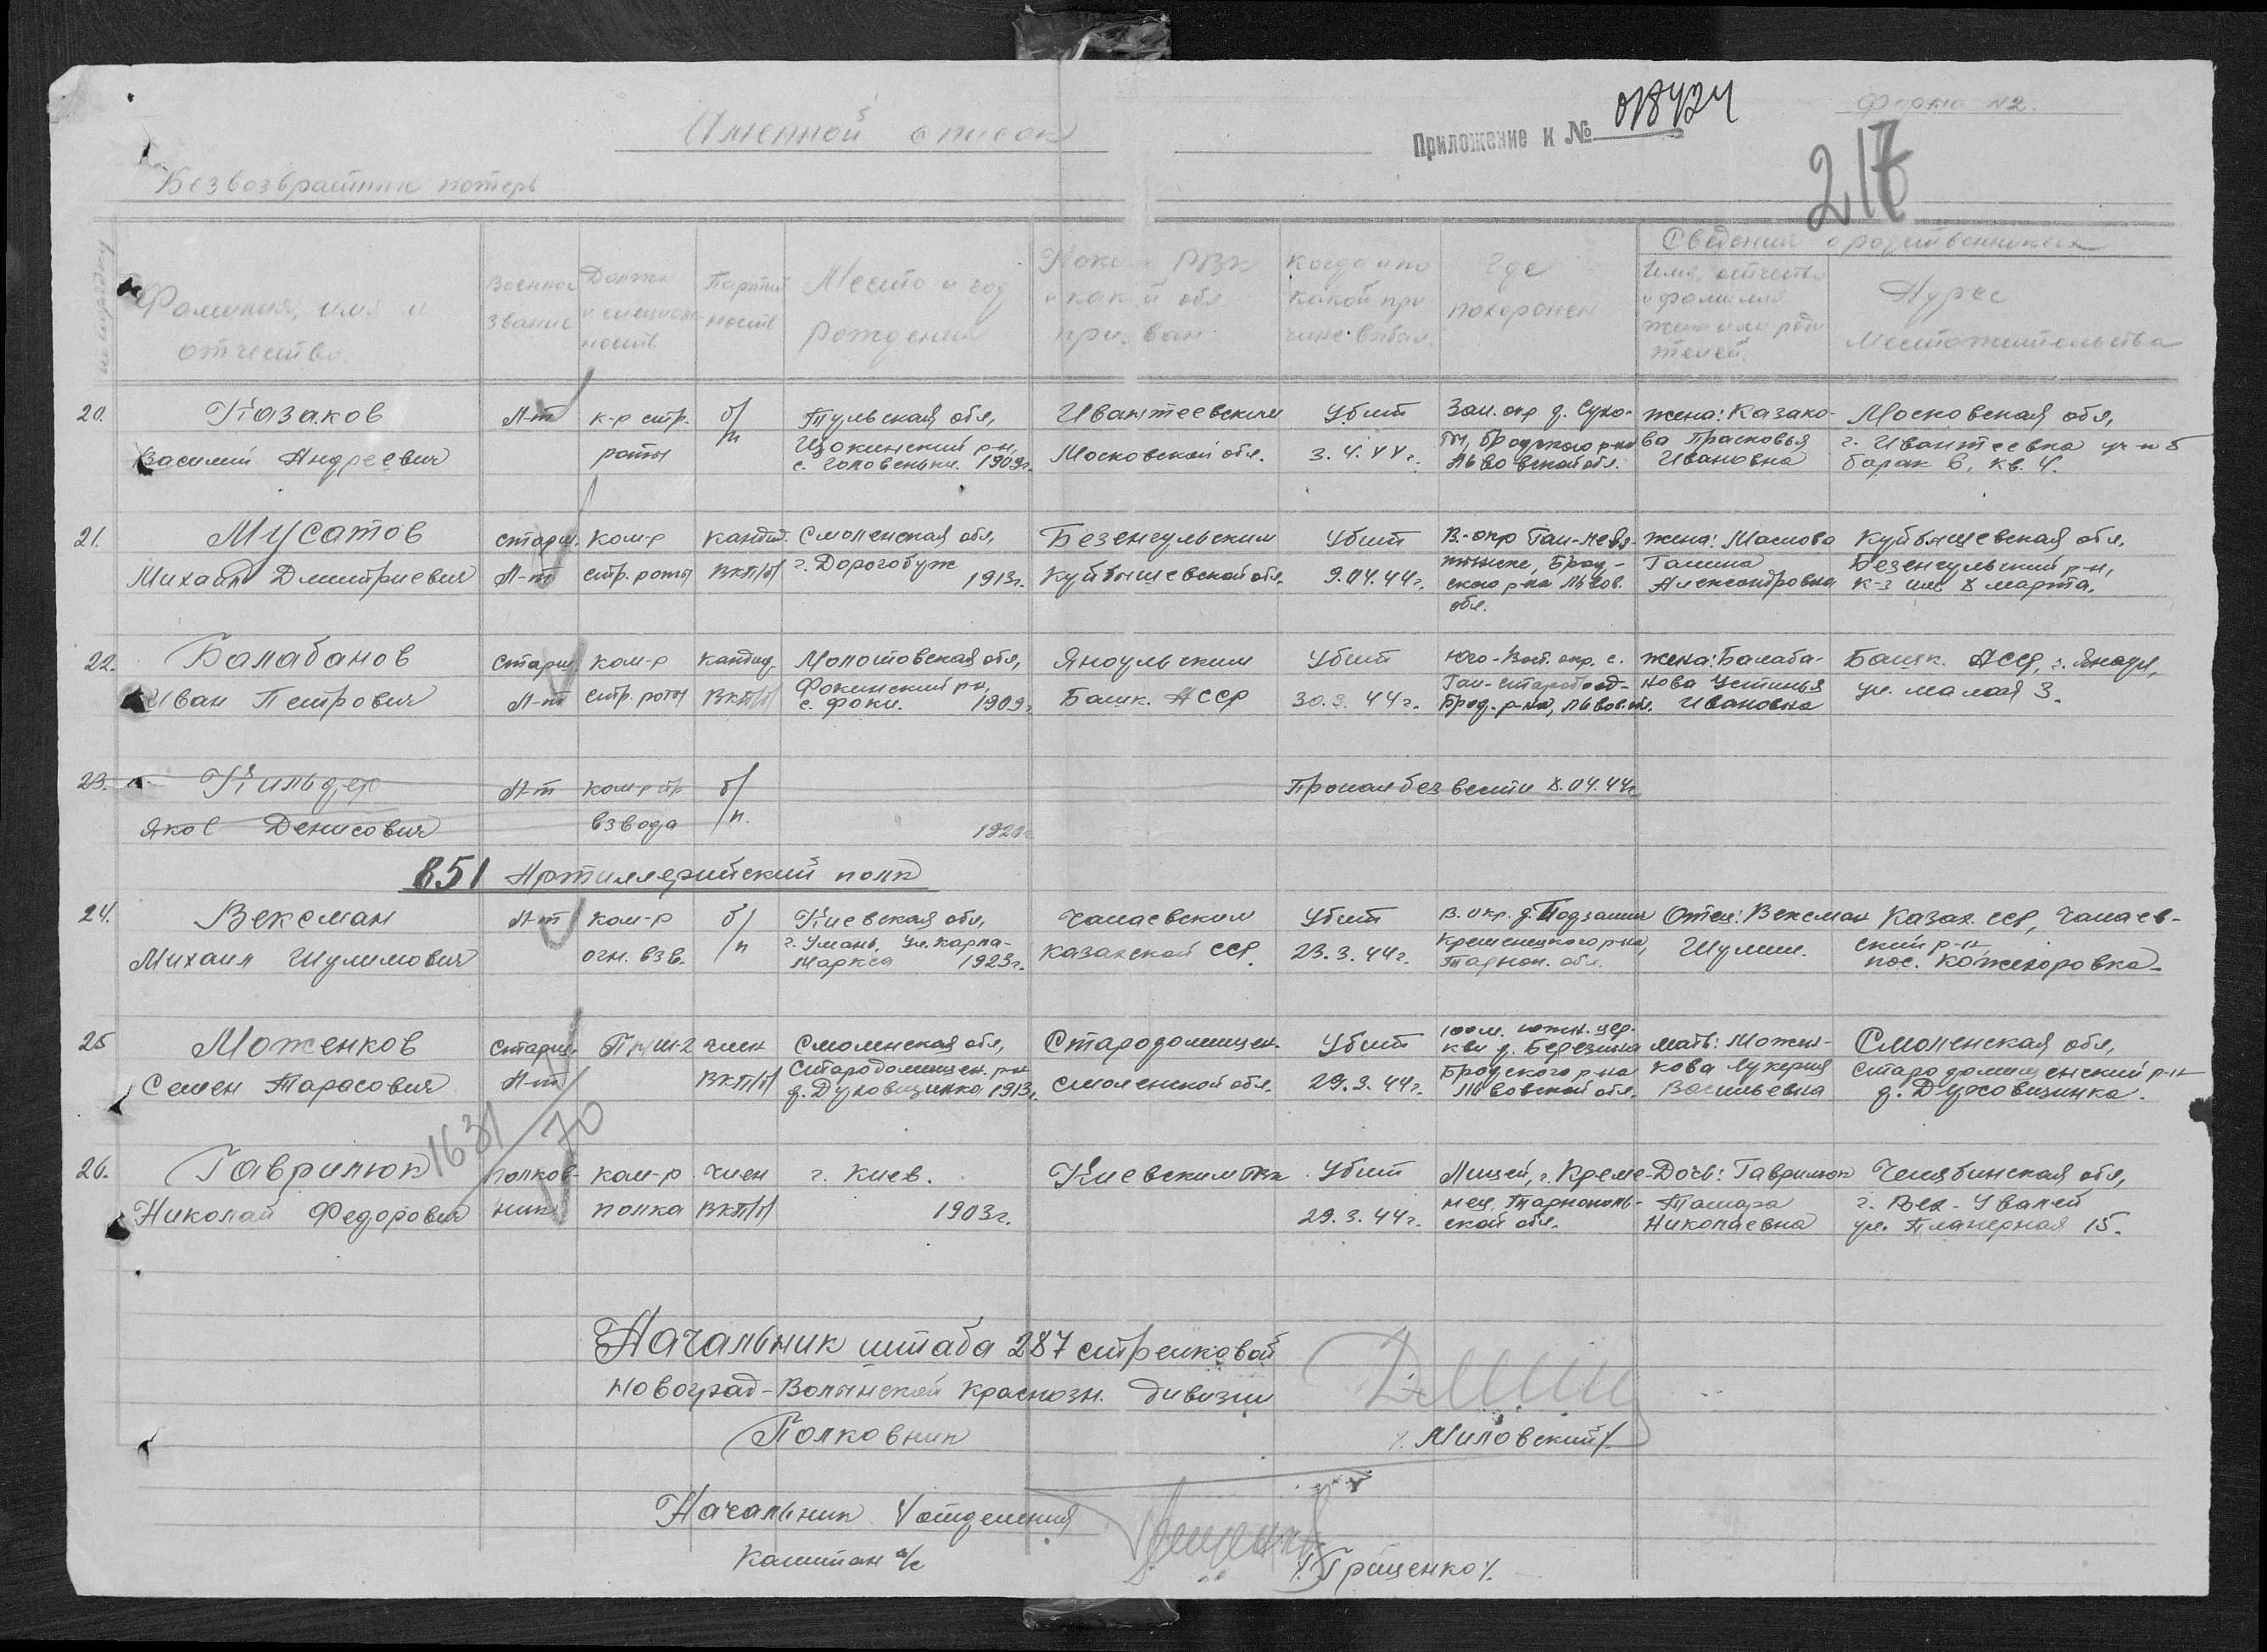 Именной список
Приложение к № 018424
Форма №2.
217
Безвозвратных потерь
по порядку
Фамилия, имя и
отчество.
Военное
звание
Должн.
и специаль-
ность
Партий
ность
Место и год
рождения
Каким РВК
и какой обл.
призван
Когда и по
какой при-
чине выбыл.
Где
похоронен
Сведения о родственниках
Имя, отчество
и фамилия
жены или роди
телей.
Адрес
местожительства
20. Казаков Л-т к-р стр. б/ Тульская обл, Ивантеевским Убит Зап. окр д. Сухо- жена: Казако- Московская обл,
Василий Андреевич роты п Щокинский р-н, Московской обл. 3.4.44г. ты, Бродского р-на ва Прасковья г. Ивантеевка
с. Головеньки. 1909г. Львовской обл. Ивановна барак 6, кв. 4.
21. Мусатов старш. ком-р кандид. Смоленская обл, Безенчульским Убит В.-окр Гаи- жена: Маслова Куйбышевская обл,
Михаил Дмитриевич Л-т стр. роты ВКП/б/ г. Дорогобуж 1913г. Куйбышевской обл. 9.04.44г. Брод- Галина Безенчульский р-н,
ского р-на Львов. Александровна к-з им 8 марта.
обл.
22. Балабанов старш. ком-р кандид. Молотовская обл, Янаульским Убит Юго-Вост. окр. с. жена: Балаба- Башк. АССР, с. Янаул,
Иван Петрович Л-т стр. роты ВКП/б/ Фокинский р-н, Башк. АССР 30.3.44г. Гаи-Староброд- нова Устинья ул. малая 3.
с. Фоки. 1909г Брод. р-на, Львов. обл. Ивановна
23. Кильдер Л-т ком-р стр б/ Пропал без вести 8.04.44г
Яков Денисович взвода /п.
851 Артиллерийский полк
24. Вексман Л-т ком-р б/ Киевская обл, Чапаевским Убит В. окр. д. Подзамче Отец: Вексман Казах. ССР, Чапаев-
Михаил Шулимович огн. взв. /п г. Умань, ул. Карла- Казахской ССР. 23.3.44г. Кременецкого р-на, Шулим. ский р-н
Маркса 1923г. Тарноп. обл. пос.
25 Моженков Старш. ПНШ-2 член Смоленская обл, Стародомищен. Убит 100 м. южн. цер- мать:Можен- Смоленская обл,
Семен Тарасович Л-т ВКП/б/ Стародомищен. р-н Смоленской обл. 29.3.44г. кви д. Березина кова Лукерия Стародомищенский р-н
д. Духовщинка, 1913г. Бродского р-на Васильевна д. Духовщинка.
Львовской обл.
1631
70
26. Гаврилюк Полков- ком-р член г. Киев. Киевским ГВК Убит Лицей, г. Креме- Дочь: Гаврилюк Челябинская обл,
Николай Федорович ник полка ВКП/б/ 1903г. 29.3.44г. нец, Тарнополь- Тамара г. Вех-Увалей
ской обл. Николаевна ул. Планерная 15.
Начальник штаба 287 стрелковой
Новоград-Волынской Краснозн. дивизии
Полковник /. Миловский/.
Начальник 4 отделения
Капитан а/с /. Грищенко/.